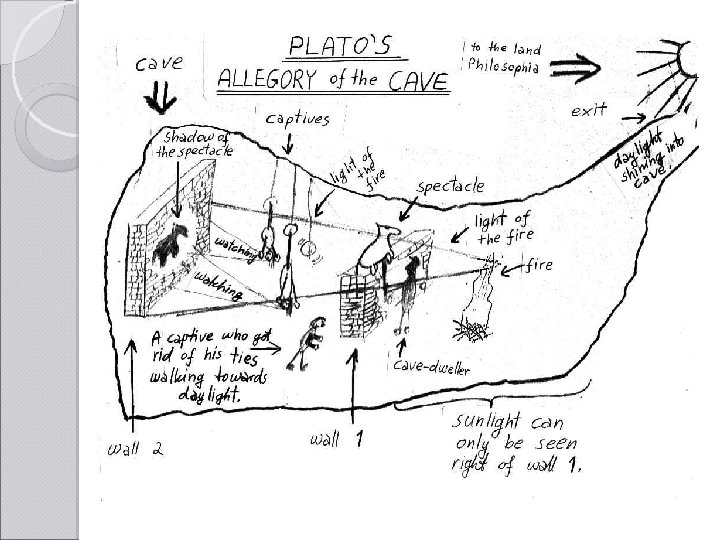 PLATO'S
ALLEGORY of the CAVE
to the land
Philosophia
cave
captives
exit
shadow of
the spectacle
light of
the
fire
daylight
shining into
cave.
spectacle
light of
the fire
watching
watching
fire
A captive who got
rid of his ties
walking towards
daylight.
cave-dweller
wall 2
wall 1
sunlight can
only be seen
right of wall 1.